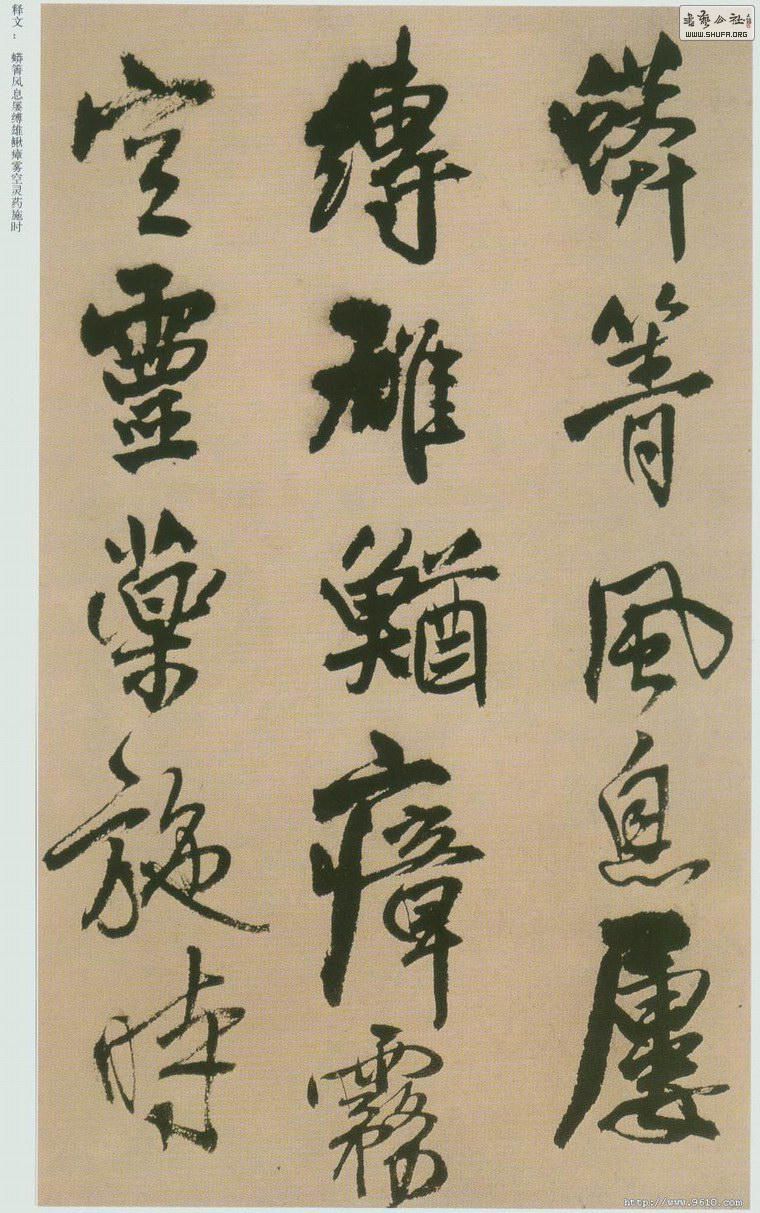 蟒箐風息屢
縛雄鰌瘴霧
空靈藥施時
释文： 蟒箐风息屡缚雄鳅瘴雾空灵药施时
書藝公社
WWW.SHUFA.ORG
http://www.9610.com